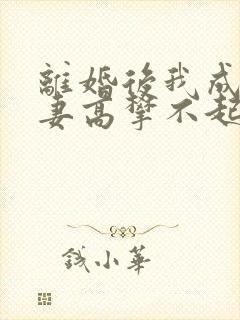 離婚後我成
妻高攀不起
錢小華